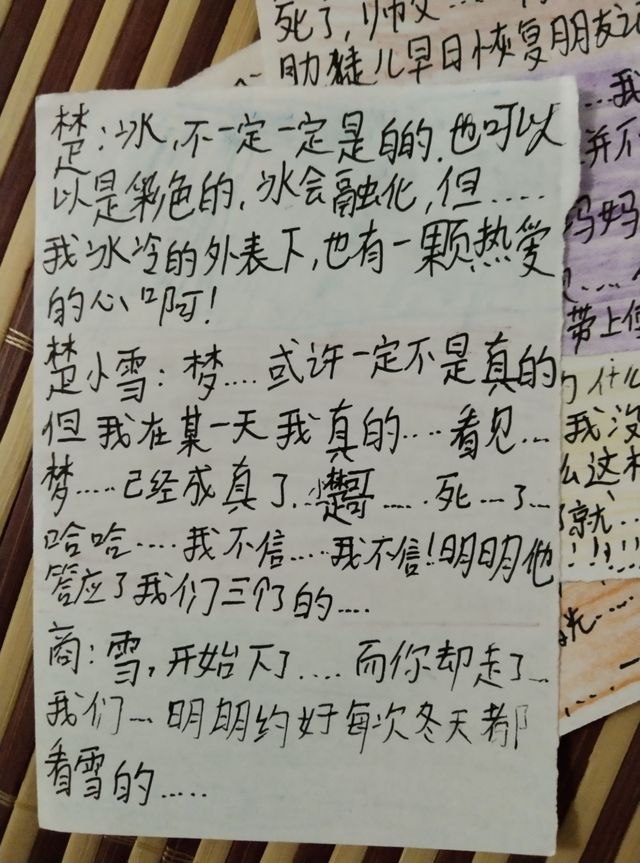 死了,师父....
助徒儿早日恢复朋友之
楚:冰,不一定一定是白的.也可以
以是彩色的,冰会融化,但.....
我冰冷的外表下,也有一颗热爱
的心啊!
楚小雪:梦....或许一定不是真的
但我在某一天我真的....看见...
梦.....已经成真了.小楚哥.....死....了...
哈哈....我不信....我不信!明明他
答应了我们三个的....
商:雪,开始下了....而你却走了...
我们...明明约好每次冬天都
看雪的.....
...我
并不
妈妈
带上
什么
我没
么这样
就...